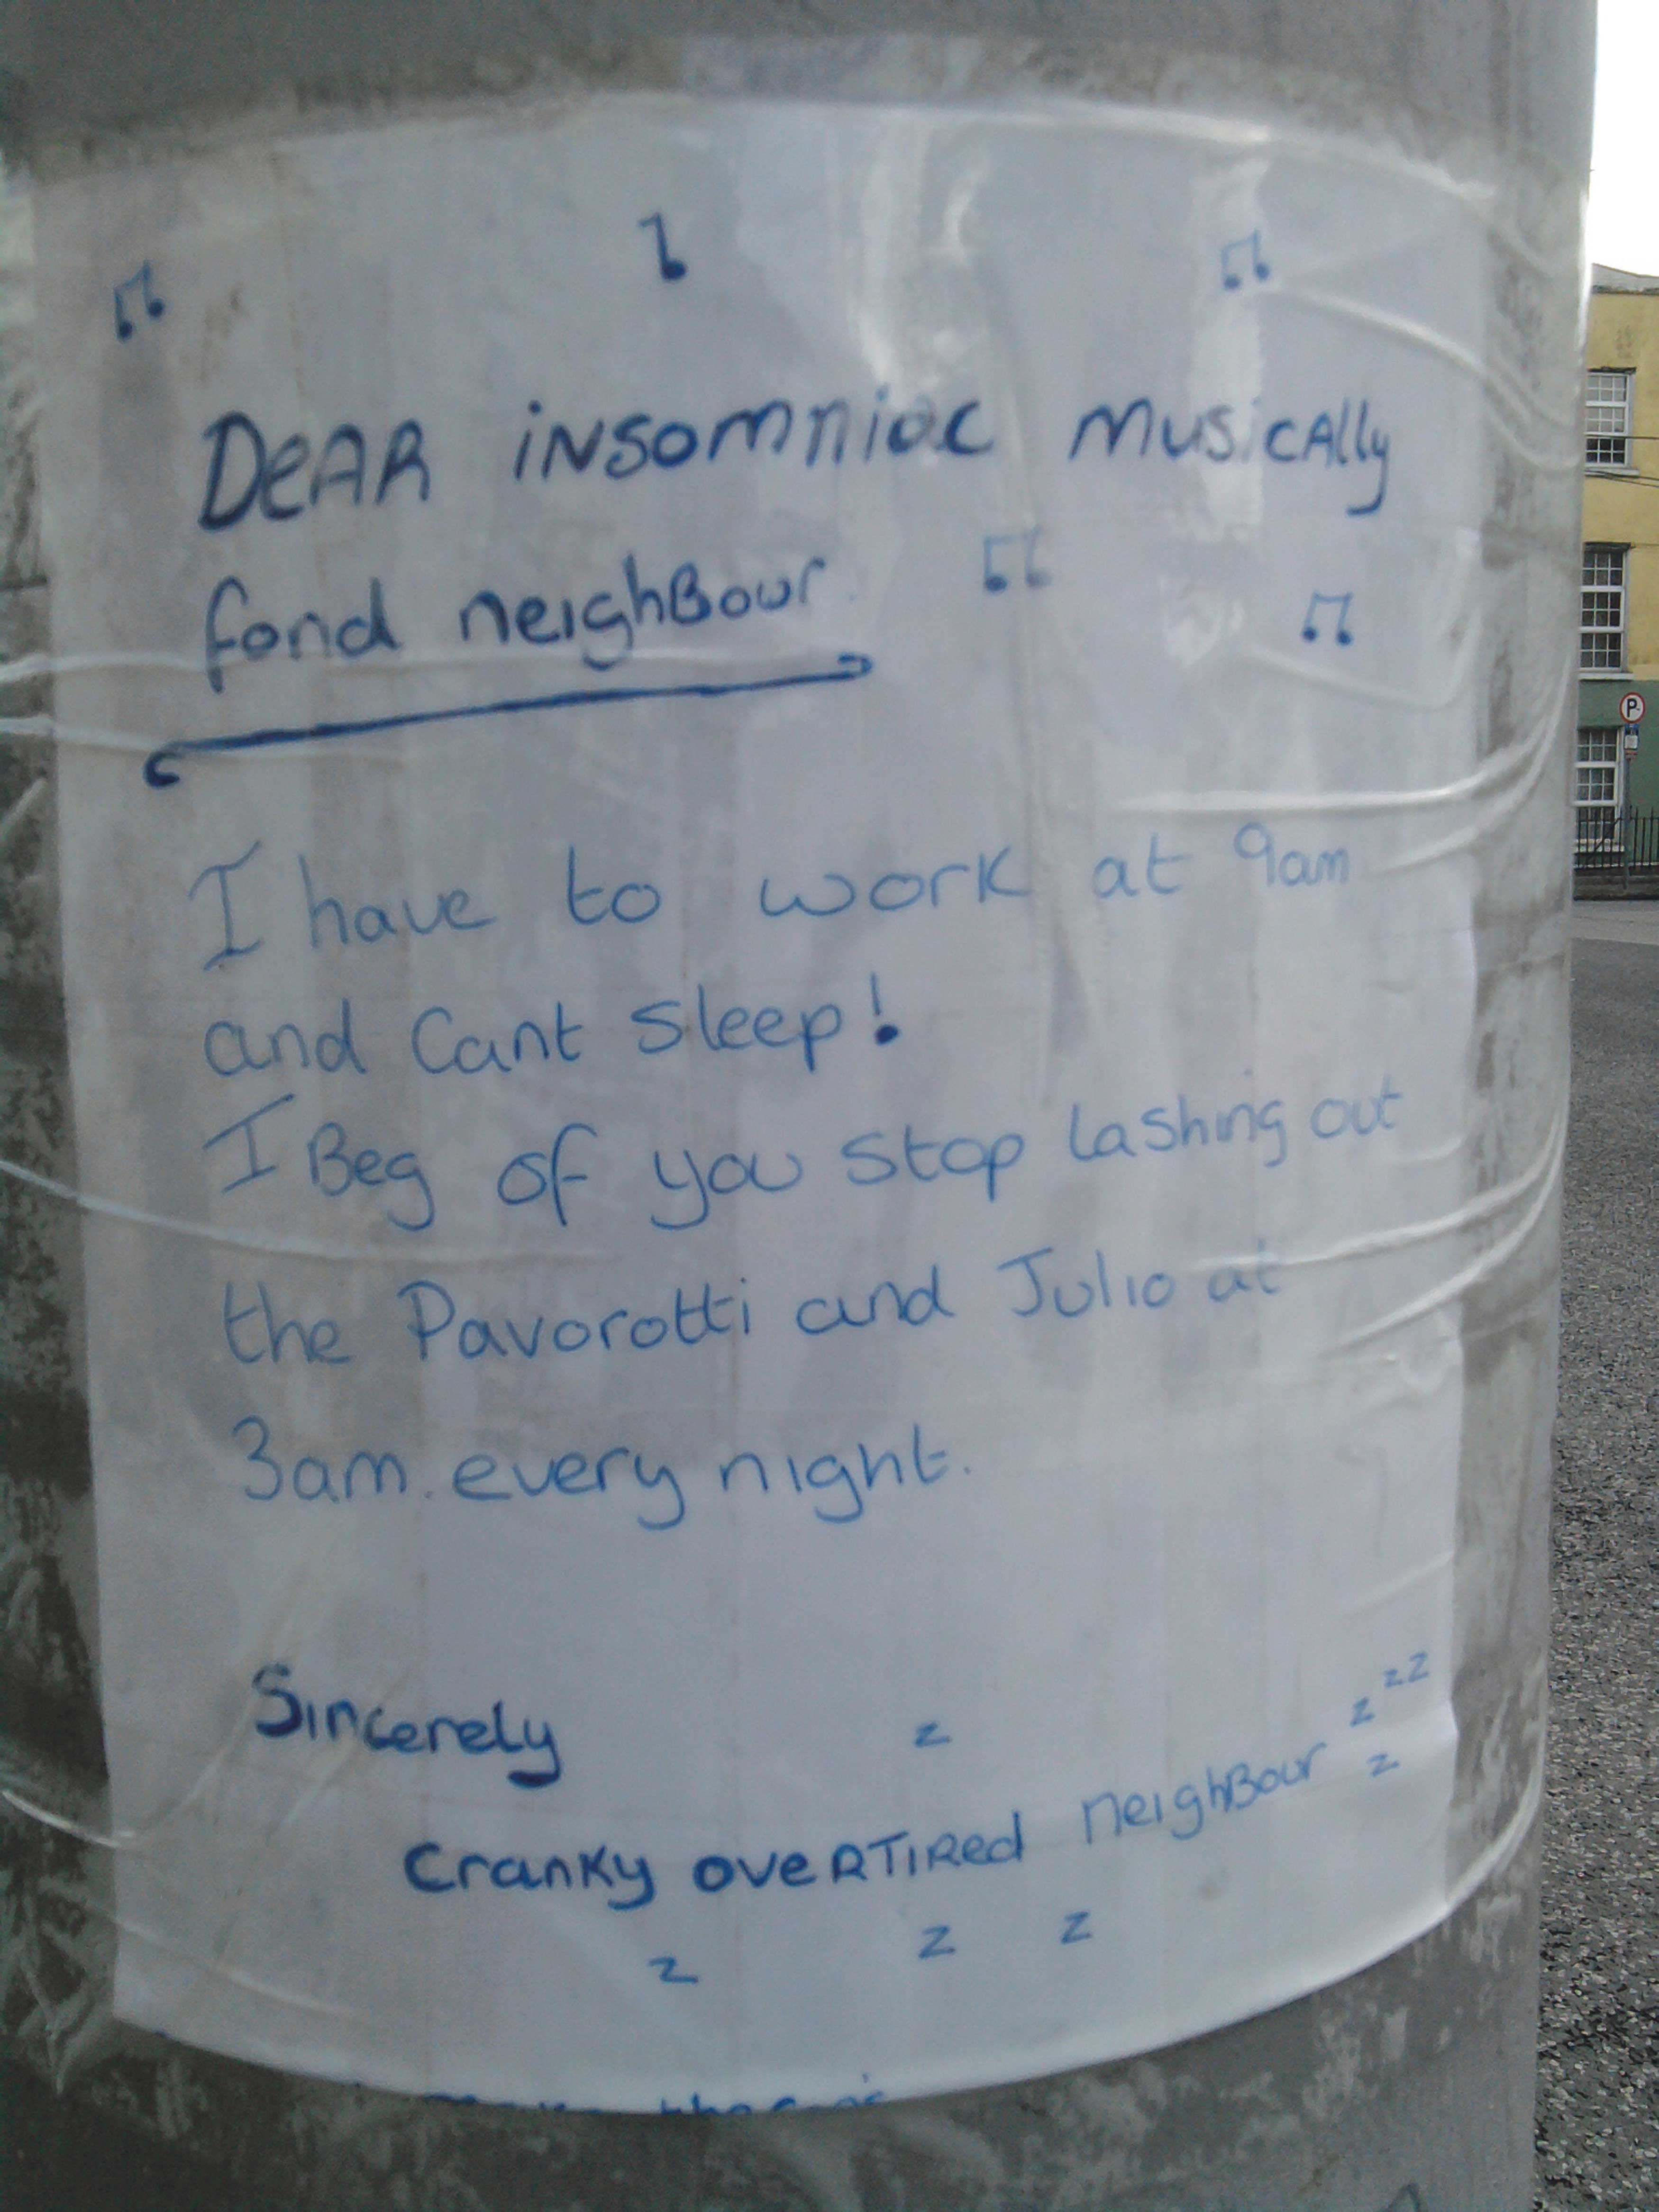 DeAR inSomniac MusicAlly
fond neighBour
I have to work at 9am
and Cant Sleep!
I Beg of you Stop lashing out
the Pavorotti and Julio at
3am. every night.
Sincerely
z
z z z
z
Cranky oveRTiRed neighBour
z z z
P